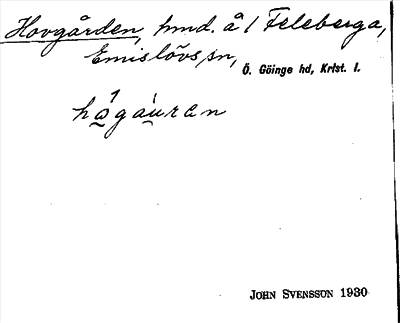 Hovgården, hmd. å 1 Feleberga,
Emislövs sn,
Ö. Göinge hd, Krist. l.
hågauran
JOHN SVENSSON 1930